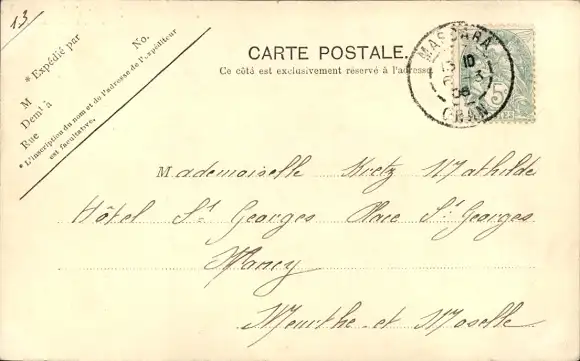 13
* Expédié par
M
Demt à
No.
Rue
* L'inscription du nom et de l'adresse de l'expéditeur
est facultative.
CARTE POSTALE.
Ce côté est exclusivement réservé à l'adresse
MASCARA
ORAN
5
Mademoiselle Kretz Mathilde
Hôtel St Georges Place St Georges
Nancy
Meurthe-et Moselle